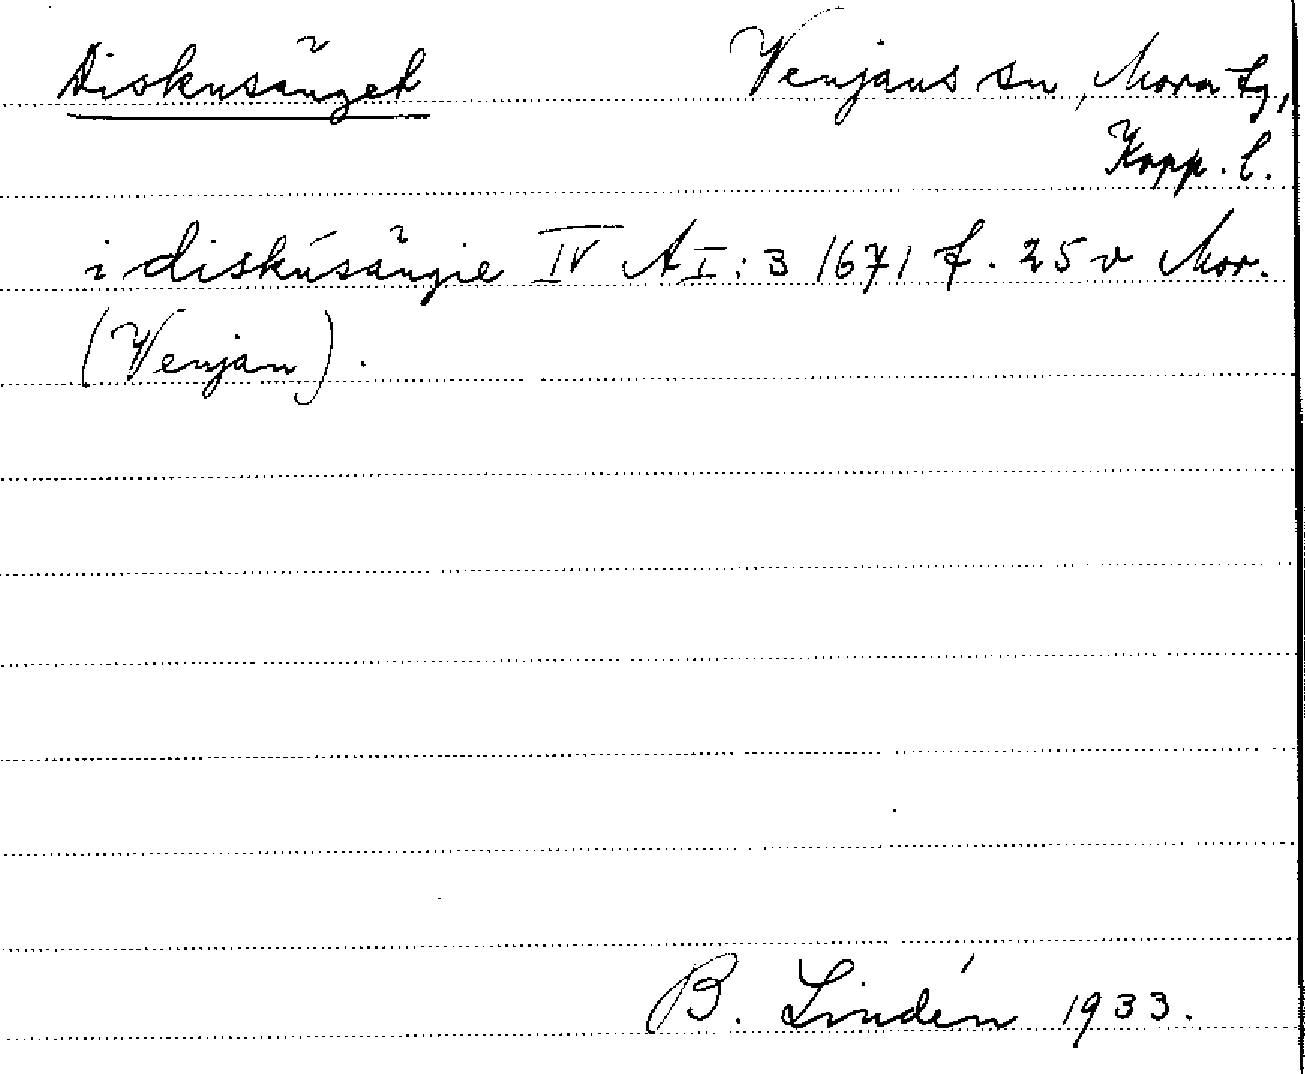 Diskusänget Venjans sn, Mora tg,
Kopp. l.
i diskusängie IV A I: 3 1671 f. 25 v Mor.
(Venjan).
B. Lindén 1933.